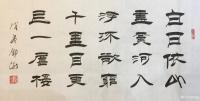 白日依山
盡黃河入
海流欲窮
千里目更
上一層樓
戊戌